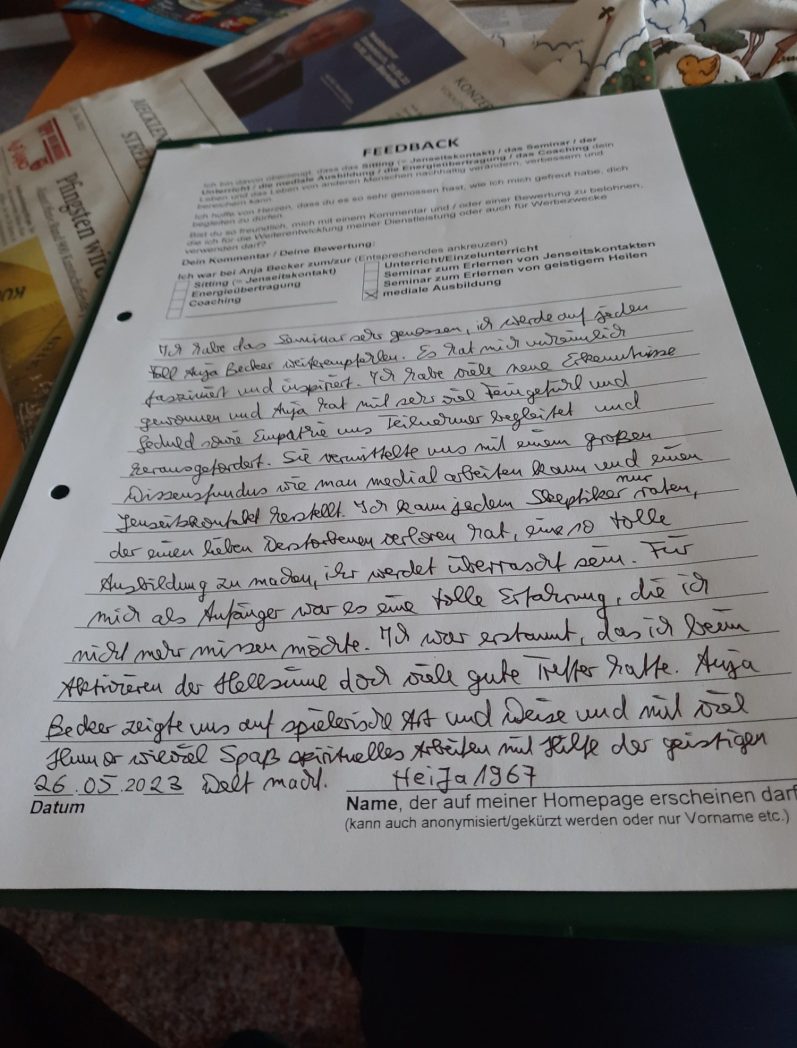 KONZE
MECKLEN
STREL
Pfingsten wird
FEEDBACK
Ich bin davon überzeugt, dass das Sitting (= Jenseitskontakt) / das Seminar / der
Unterricht / die mediale Ausbildung / die Energieübertragung / das Coaching dein
Leben und das Leben von anderen Menschen nachhaltig verändern, verbessern und
bereichern kann.
Ich hoffe von Herzen, dass du es so sehr genossen hast, wie ich mich gefreut habe, dich
begleiten zu dürfen.
Bist du so freundlich, mich mit einem Kommentar und / oder einer Bewertung zu belohnen,
die ich für die Weiterentwicklung meiner Dienstleistung oder auch für Werbezwecke
verwenden darf?
Dein Kommentar / Deine Bewertung:
Ich war bei Anja Becker zum/zur (Entsprechendes ankreuzen)
Sitting (= Jenseitskontakt)
Energieübertragung
Coaching
Unterricht/Einzelunterricht
Seminar zum Erlernen von Jenseitskontakten
Seminar zum Erlernen von geistigem Heilen
mediale Ausbildung
Ich habe das Seminar sehr genossen, ich werde auf jeden
Fall Anja Becker weiterempfehlen. Es hat mich unheimlich
fasziniert und inspiriert. Ich habe viele neue Erkenntnisse
gewonnen und Anja hat mit sehr viel Feingefühl und
Geduld sowie Empathie uns Teilnehmer begleitet und
herausgefordert. Sie vermittelte uns mit einem großen
Wissensfundus wie man medial arbeiten kann und einen
Jenseitskontakt herstellt. Ich kann jedem Skeptiker nur raten,
der einen lieben Verstorbenen verloren hat, eine so tolle
Ausbildung zu machen, ihr werdet überrascht sein. Für
mich als Anfänger war es eine tolle Erfahrung, die ich
nicht mehr missen möchte. Ich war erstaunt, das ich beim
Aktivieren der Hellsinne doch viele gute Treffer hatte. Anja
Becker zeigte uns auf spielerische Art und Weise und mit viel
Humor wieviel Spaß spirituelles Arbeiten mit Hilfe der geistigen
26.05.2023 Welt macht. HeiJa1967
Datum
Name, der auf meiner Homepage erscheinen darf
(kann auch anonymisiert/gekürzt werden oder nur Vorname etc.)